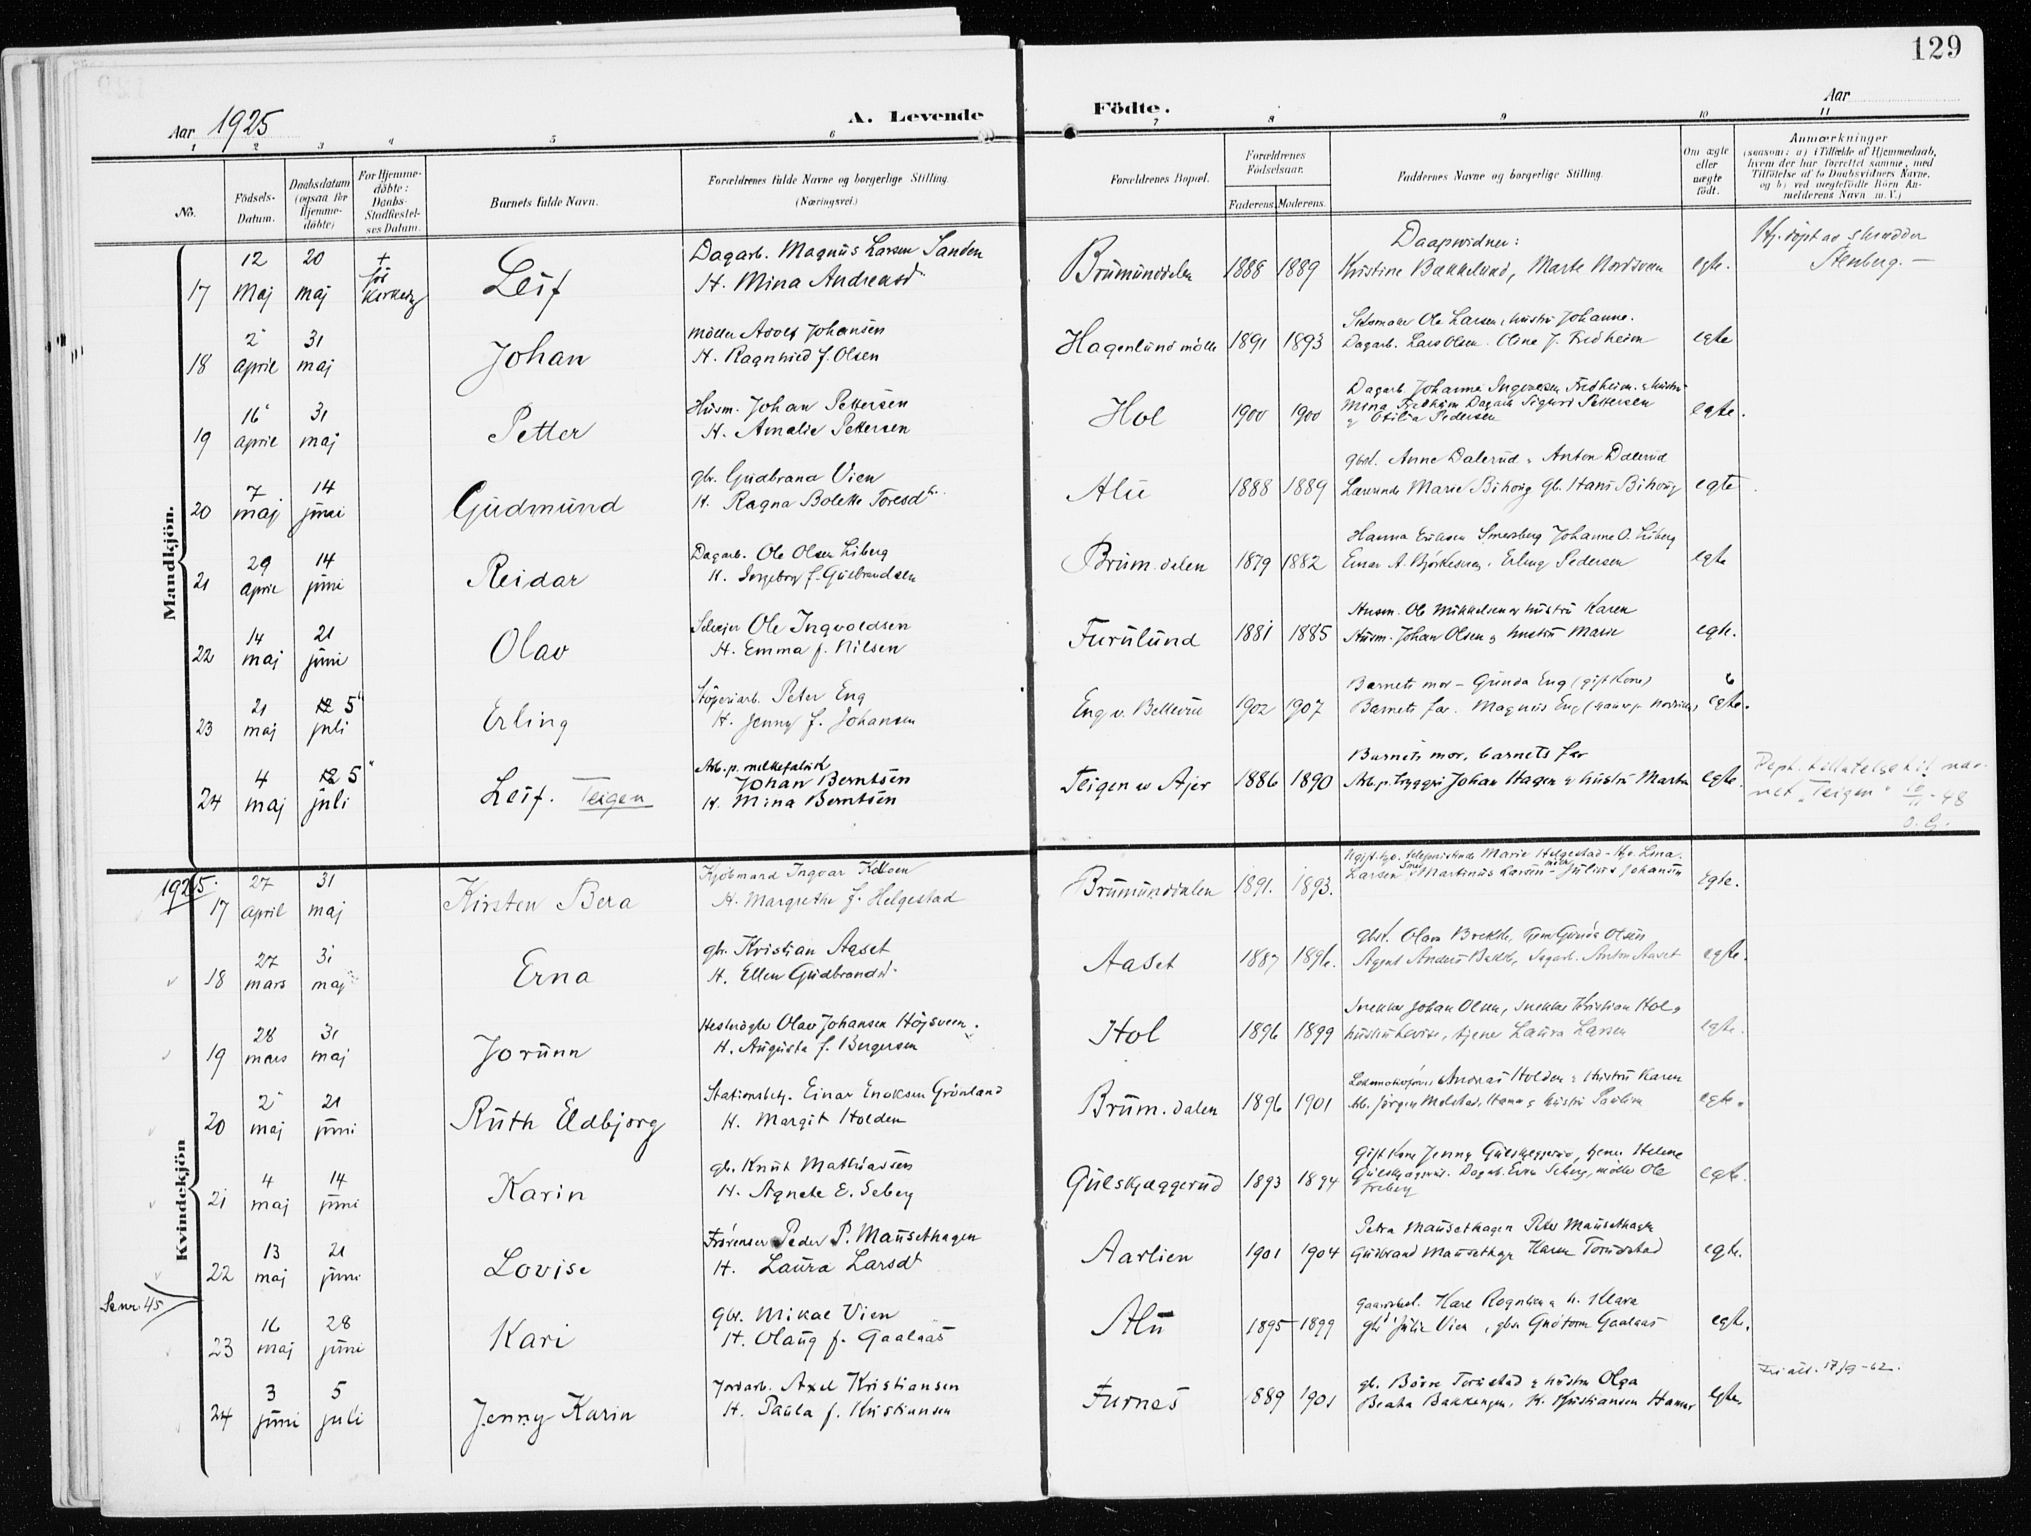 129
Aar 1925
A. Levende
Födte.
Aar
1 2 3 4 5 6 7 8 9 10 11
No.
Födsels-Datum.
Daabsdatum (ogsaa for Hjemmedöbte)
For Hjemmedöbte: Daabs-Stadfæstelses Datum.
Barnets fulde Navn.
Forældrenes fulde Navne og borgerlige Stilling. (Næringsvei.)
Forældrenes Bopæl.
Forældrenes Födselsaar.
Faderens. Moderens.
Faddernes Navne og borgerlige Stilling.
Om ægte eller uægte födt.
Anmærkninger
(saasom: a) i Tilfælde af Hjemmedaab, hvem der har forrettet samme, med Tilföielse af to Daabsvidners Navne, og b) ved uægtefödte Börn Anmelderens Navn m. V.)
Mandkjön.
17 12 Maj 20 maj + Leif
Dagarb. Magnus Larsen Sanden
H. Mina Andreasd
Brumunddalen 1888 1889
Daapsvidner:
Kristine Bakkelund, Marte Nordsveen egte.
Hj. døpt av skrædder
Stenberg. —
18 2 april 31 maj Johan
Møller Adolf Johansen
H. Ragnhild f. Olsen
Hagenlund mølle 1891 1893
Ole Larsen, hustru Johanne.
Dagarb. Lars Olsen. Olina J. Fredheim egte
19 16 april 31 maj Petter
Husm. Johan Pettersen
H. Amalie Pettersen
Hol 1900 1900
Dagarb. Johannes Fredheim. & hustru
Mina Fredheim Dagarb Sigurd Pettersen
& Otilia Pedersen egte.
20 7 maj 14 juni Gudmund
gbr. Gudbrand Vien
H. Ragna Bolette Toresdtr.
Alu 1888 1889
gbst. Anne Dalerud, Anton Dalerud
Marie Bihoug gb. Hans Bihoug egte
21 29 april 14 juni Reidar
Dagarb. Ole Olsen Liberg
H. Ingeborg f. Gulbrandsen
Brum.dalen 1879 1882
Hanna Eriksen Smedsberg Johanne O. Liberg
Einar A. Erling Pedersen egte
22 14 maj 21 juni Olav
Selveier Ole Ingvoldsen
H. Emma f. Nilsen
Furulund 1881 1885
Husm. Ole Mikkelsen og hustru Karen
Husm. Johan Olsen & hustru Marie egte.
23 21 maj 5 juli Erling
Støperiarb. Peter Eng
H. Jenny f. Johansen
Eng v. Bellevue 1902 1907
Barnets mor – Gunda Eng (gift Kone)
Barnets far. Magnus Eng egte.
24 4 maj 5 juli Leif. Teigen
Arb. p. melkefabrik
Johan Berntsen
H. Mina Berntsen
Teigen av Ajer 1886 1890
Barnets mor, barnets far
Arb. p. bryggeri Johan Hagen & hustru Martea egte.
Dept. tillatelse til nav-
net „Teigen" 10/11-48
O. G.
Kvindekjön
1925.
17 27 april 31 maj Kirsten Bera
Kjøbmand Ingvar
H. Margrethe f. Helgestad
Brumunddalen 1891. 1893.
telefonistinde Marie Helgestad – Lina
Larsen Martinus Larsen – Julius Johansen egte.
18 27 mars 31 maj Erna
gbr. Kristian Aaset
H. Ellen Gudbrandsd.
Aaset 1887 1896.
gbst. Olava Gunda Olsen
Agent Anders dagarb. Anton Aaset egte.
19 28 mars 31 maj Jorunn
Hestrøgter Olav Johansen Højsveen.
H. Augusta f. Bergersen
Hol 1896 1899
Snekker Johan Olsen, snekker Kristian Hol &
hustru Lovise, tjener Laura Larsen egte.
20 2 maj 21 juni Ruth Eldbjorg
Stationsbetj. Einar Enoksen Grönland
H. Margit Holden
Brum.dalen 1896 1901
Andreas Holden & hustru Karen
Arb. Jørgen & hustru Pauline egte.
21 4 maj 14 juni Karin
gb. Knut Mathiassen
H. Agnete E. Seberg
Gulskjæggerud 1893 1894
Gift Kone Jenny Gulskjæggerud, tjener Helene
Gulskjæggerud. Dagarb. Even Seberg, møller Ole
Freberg egte.
22 13 maj 21 juni Lovise
Peder P. Mausethagen
H. Laura Larsdt
Aarlien 1901 1904
Petra Mausethagen Peter Mausethagen
Gudbrand Mausethagen Karen Torudstad egte.
Se nr. 45
23 16 maj 28 juni Kari
Gbr. Mikal Vien
H. Olaug f. Gaalaas
Alu 1895 1899
Kare Rognlien & h. Klara
Julie Vien, gbr Guttorm Gaalaas egte.
24 3 juni 5 juli Jenny Karin
Jordarb. Axel Kristiansen
H. Paula f. Kristiansen
Furnes 1889 1901
gb. Børre Torudstad & hustru Olga
Beata Bakkengen, K. Kristiansen Hamar egte.
Fri att. 17/9-62.